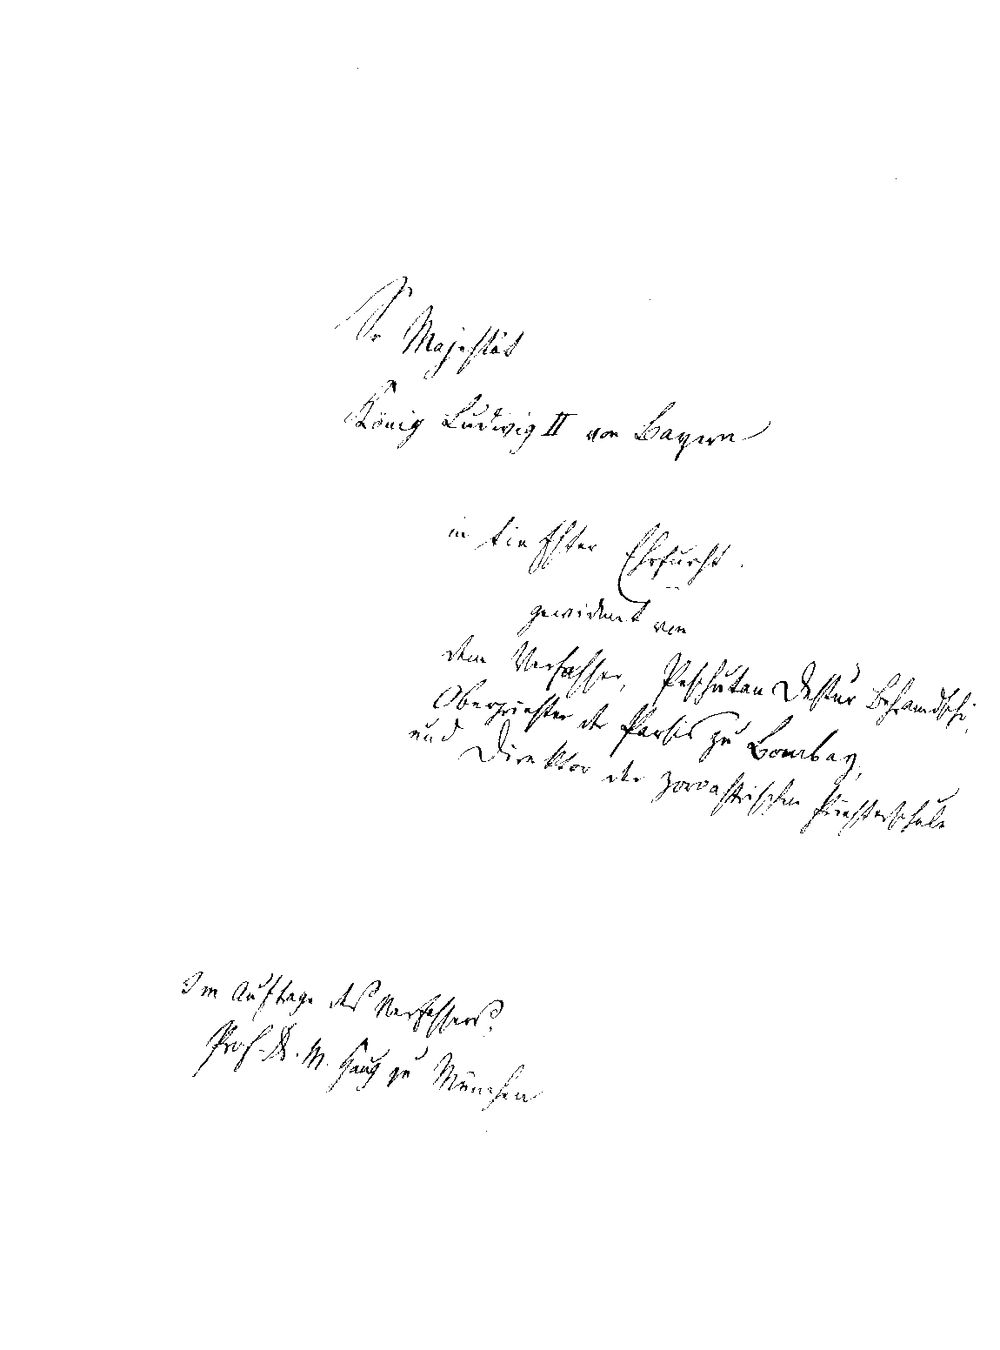 Sr Majestät
König Ludwig II von Bayern
in tiefster Ehrfurcht
gewidmet von
dem Verfasser, Peschutan Destur Behramdschi,
Oberpriester der Parsis zu Bombay,
und Direktor der zoroastrischen Priesterschule
Im Auftrage des Verfassers:
Prof. Dr. M. Haug zu München